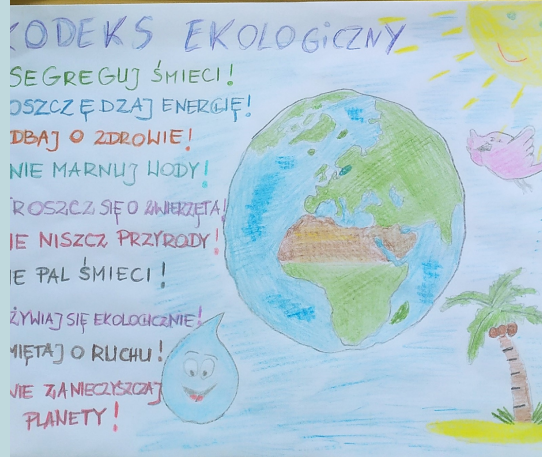 KODEKS EKOLOGICZNY
SEGREGUJ ŚMIECI!
OSZCZĘDZAJ ENERGIĘ!
DBAJ O ZDROWIE!
NIE MARNUJ WODY!
TROSZCZ SIĘ O ZWIERZĘTA!
NIE NISZCZ PRZYRODY!
NIE PAL ŚMIECI!
ŻYWIAJ SIĘ EKOLOGICZNIE!
MIĘTAJ O RUCHU!
NIE ZANIECZYSZCZAJ
PLANETY!